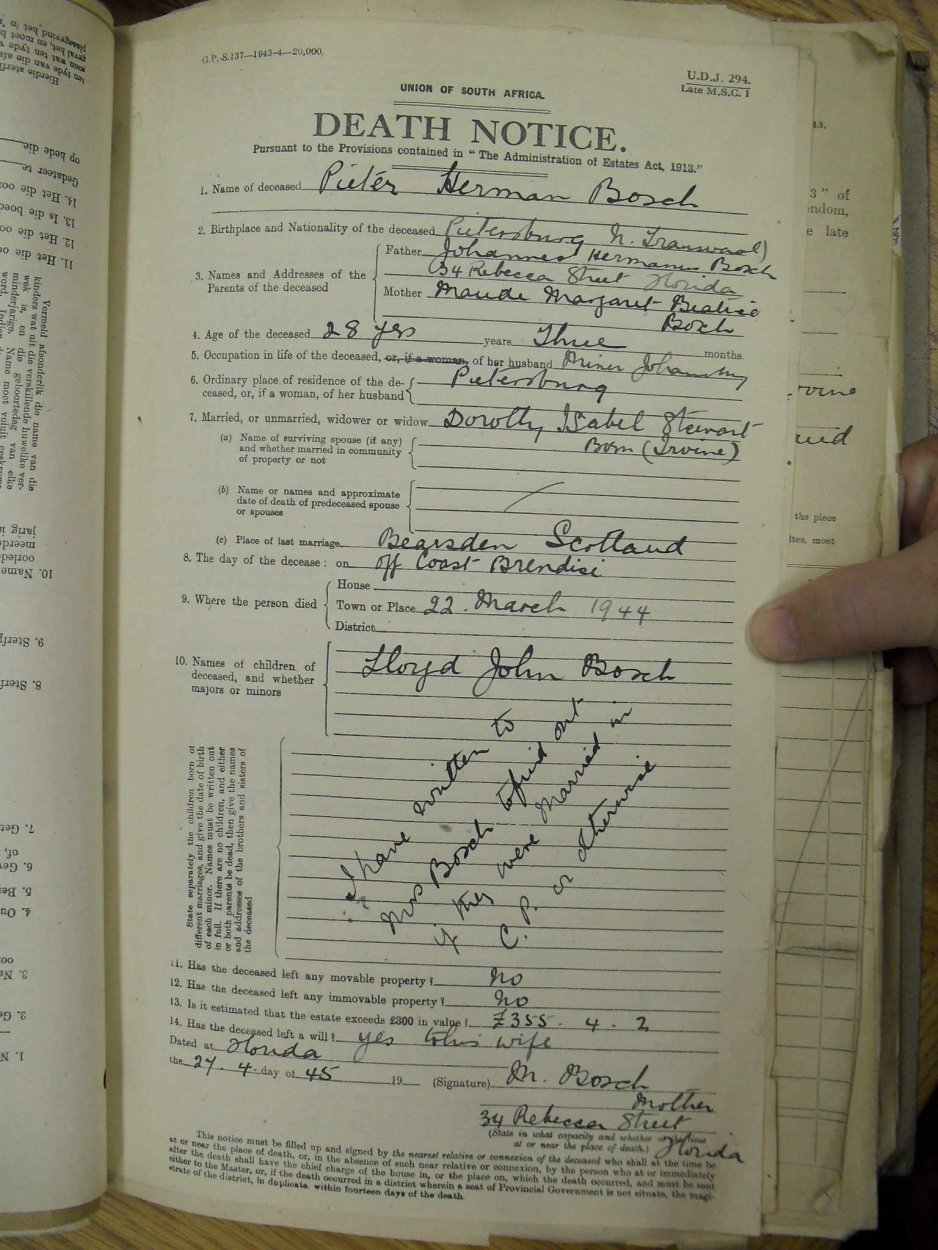 G.P.-S.137—1943-4—20,000.
U.D.J. 294.
Late M.S.C. 1
UNION OF SOUTH AFRICA.
DEATH NOTICE.
Pursuant to the Provisions contained in "The Administration of Estates Act, 1913."
1. Name of deceased Pieter Herman Bosch
2. Birthplace and Nationality of the deceased Pietersburg N. Transvaal
3. Names and Addresses of the Parents of the deceased
Father Johannes Hermanus Bosch
34 Rebecca Street Florida
Mother Maude Margaret Beatrice
Bosch
4. Age of the deceased 28 yrs years Three months.
5. Occupation in life of the deceased, or, if a woman, of her husband Miner
6. Ordinary place of residence of the de-
ceased, or, if a woman, of her husband
Pietersburg
7. Married, or unmarried, widower or widow Dorothy Isabel Stewart
(a) Name of surviving spouse (if any)
and whether married in community
of property or not
Born (Irvine)
(b) Name or names and approximate
date of death of predeceased spouse
or spouses
(c) Place of last marriage Bearsden Scotland
8. The day of the decease: on off Coast Brendisi
9. Where the person died
House
Town or Place 22. March 1944
District
10. Names of children of
deceased, and whether
majors or minors
Lloyd John Bosch
State separately the children born of
different marriages, and give the date of birth
of each minor. Names must be written out
in full. If there are no children, and either
or both parents be dead, then give the names
and addresses of the brothers and sisters of
the deceased
I have written to
Mrs Bosch to find out
if they were Married in
C.P. or otherwise
11. Has the deceased left any movable property? No
12. Has the deceased left any immovable property? No
13. Is it estimated that the estate exceeds £300 in value? £355. 4. 2
14. Has the deceased left a will? yes to his wife
Dated at Florida
the 27. 4. day of 45 19 (Signature) M. Bosch
Mother
34 Rebecca Street
(State in what capacity and whether at the time
at or near the place of death.) Florida
This notice must be filled up and signed by the nearest relative or connexion of the deceased who shall at the time be
at or near the place of death, or, in the absence of such near relative or connexion, by the person who at or immediately
after the death shall have the chief charge of the house in, or the place on, which the death occurred, and must be sent
either to the Master, or, if the death occurred in a district wherein a seat of Provincial Government is not situate, the magi-
strate of the district, in duplicate, within fourteen days of the death.